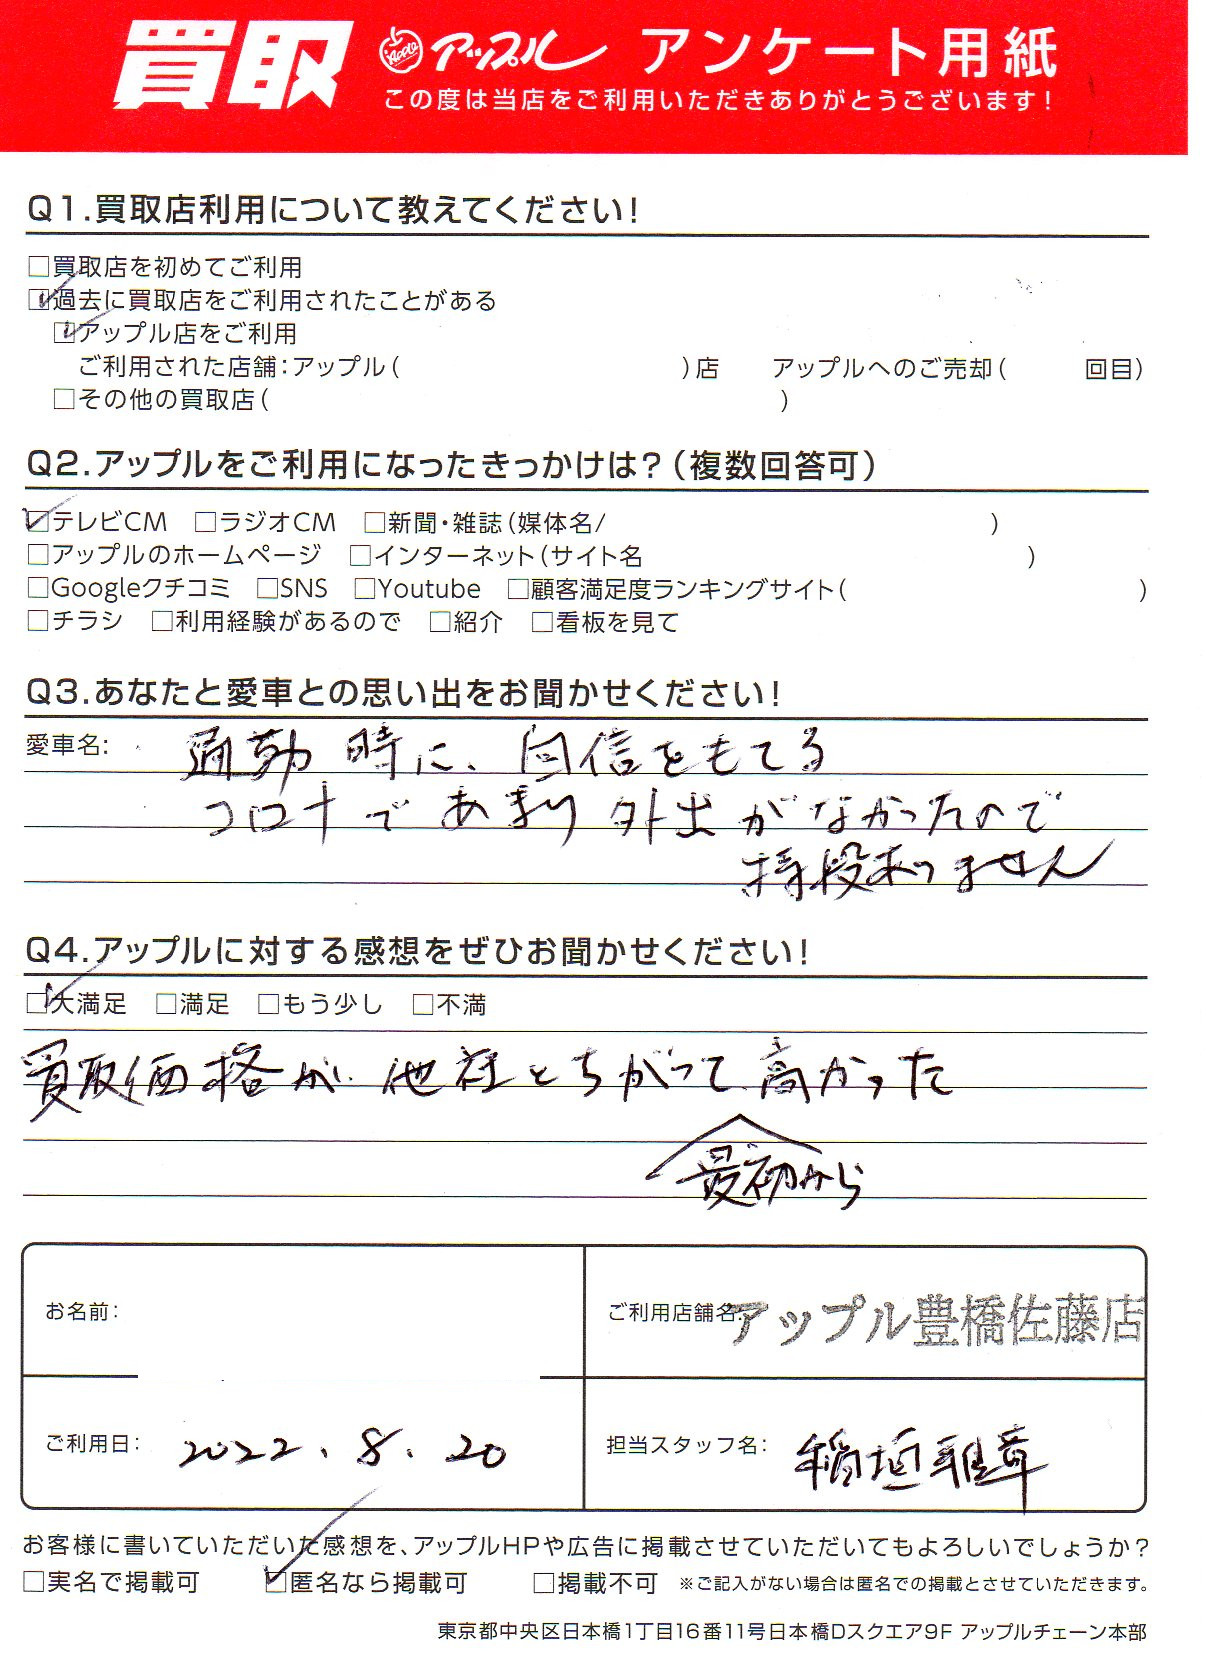 買取 Apple アップル アンケート用紙
この度は当店をご利用いただきありがとうございます!
Q1.買取店利用について教えてください!
□買取店を初めてご利用
☑過去に買取店をご利用されたことがある
☑アップル店をご利用
ご利用された店舗:アップル( )店 アップルへのご売却( 回目)
□その他の買取店( )
Q2.アップルをご利用になったきっかけは?(複数回答可)
☑テレビCM □ラジオCM □新聞・雑誌(媒体名/ )
□アップルのホームページ □インターネット(サイト名 )
□Googleクチコミ □SNS □Youtube □顧客満足度ランキングサイト( )
□チラシ □利用経験があるので □紹介 □看板を見て
Q3.あなたと愛車との思い出をお聞かせください!
愛車名: 通勤時に、自信をもてる
コロナであまり外出がなかったので
特段ありません
Q4.アップルに対する感想をぜひお聞かせください!
☑大満足 □満足 □もう少し □不満
買取価格が他社とちがって高かった
最初から
お名前: ご利用店舗名: アップル豊橋佐藤店
ご利用日: 2022.8.20 担当スタッフ名: 稲垣雅章
お客様に書いていただいた感想を、アップルHPや広告に掲載させていただいてもよろしいでしょうか?
□実名で掲載可 ☑匿名なら掲載可 □掲載不可 ※ご記入がない場合は匿名での掲載とさせていただきます。
東京都中央区日本橋1丁目16番11号日本橋Dスクエア9F アップルチェーン本部